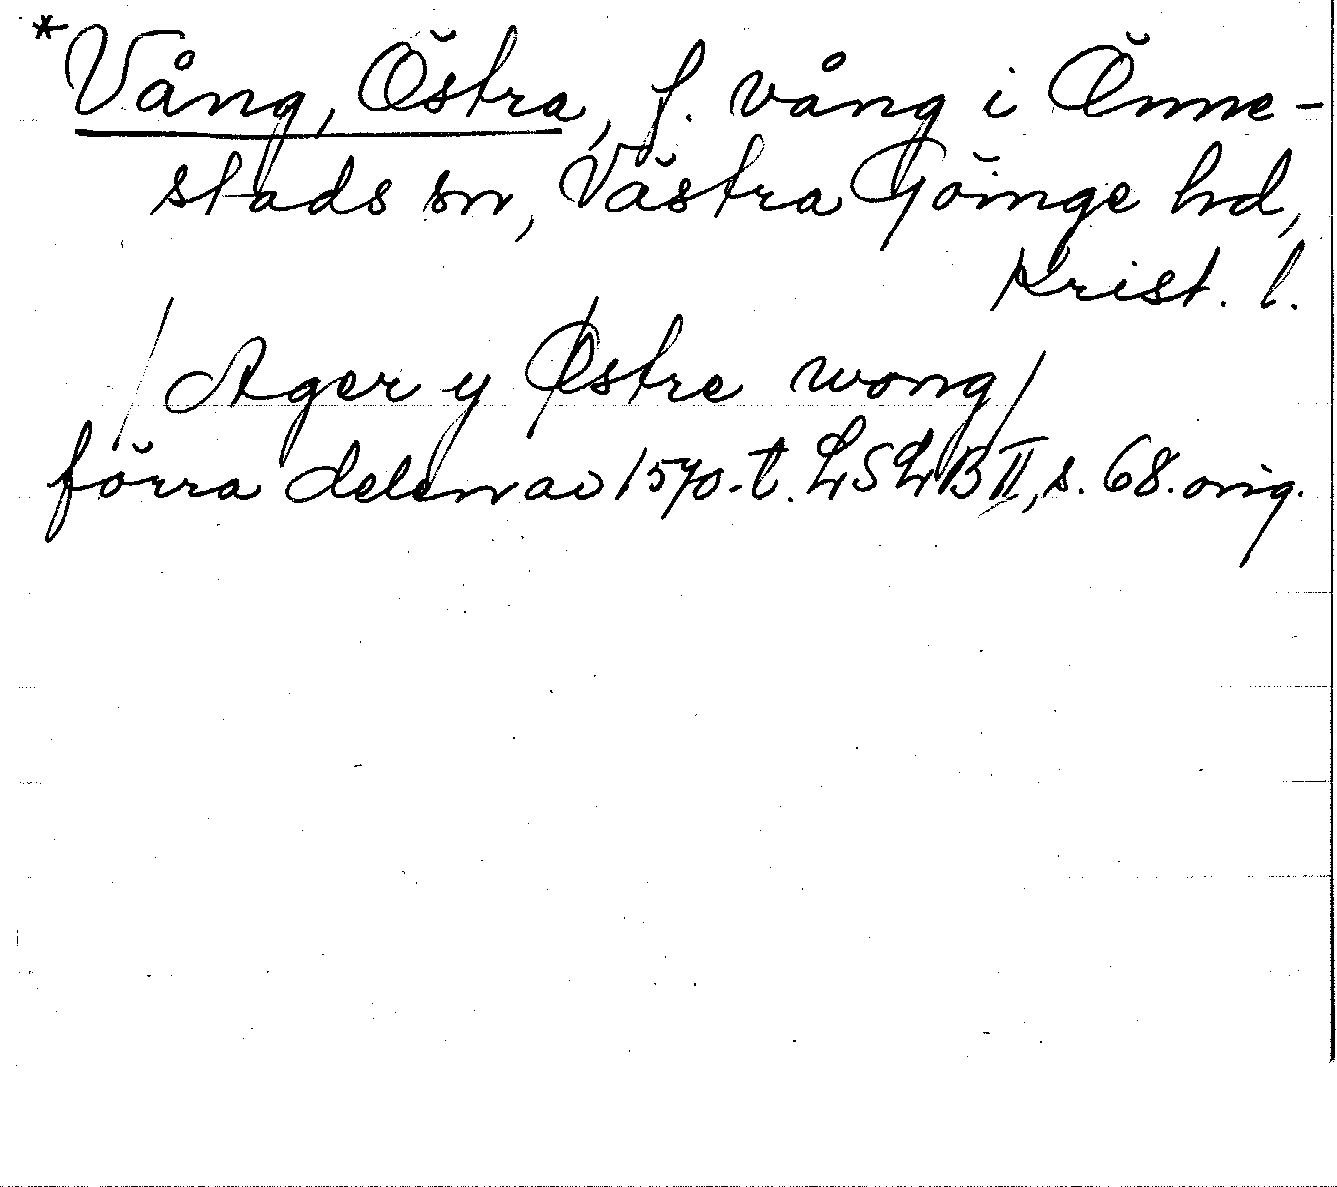 *Vång, Östra, f. vång i Önne-
stads sn, Västra Göinge hd,
Krist. l.
/Ager y Østre wong/
förra delen av 1570-t. LSLB II, s. 68. orig.